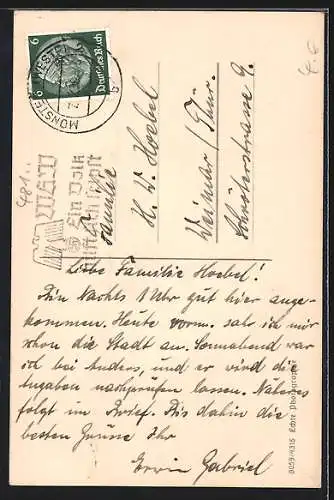 6
Deutsches Reich
MÜNSTER (WESTF)
WHW
Ein Volk
hilft sich selbst
Familie
H. W. Hoebel
Weimar / Thür.
9.
Liebe Familie Hoebel!
Bin Nachts 1 Uhr gut hier ange-
kommen. Heute vorm. sah ich mir
schon die Stadt an. Sonnabend war
ich bei Anders, und er wird die
Angaben nachprüfen lassen. Näheres
folgt im Brief. Bis dahin die
besten Grüsse Ihr
Erwin Gabriel
Echte Photographie